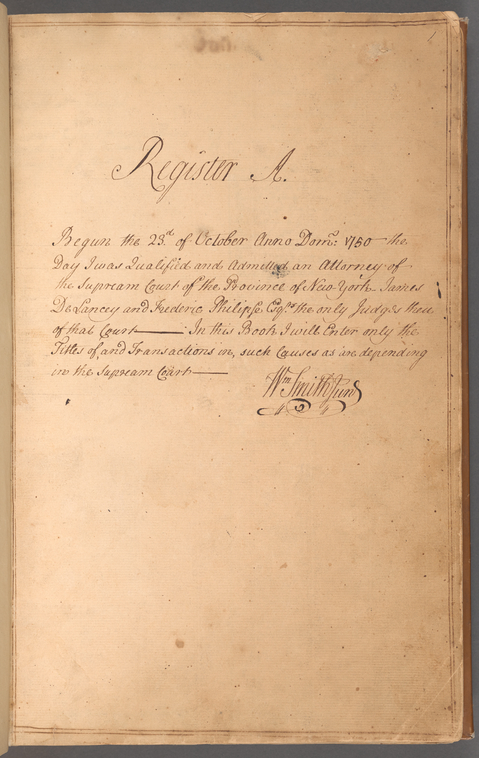 1
Register A.
Begun the 23.d of October Anno Dom: 1750 the
Day I was Qualified and Admitted an Attorney of
the Supream Court of the Province of New York James
De Lancey and Frederic Philipse Esq.rs the only Judges then
of that Court — In this Book I will Enter only the
Titles of and Transactions in, such Causes as are depending
in the Supream Court —
Wm Smith Junr